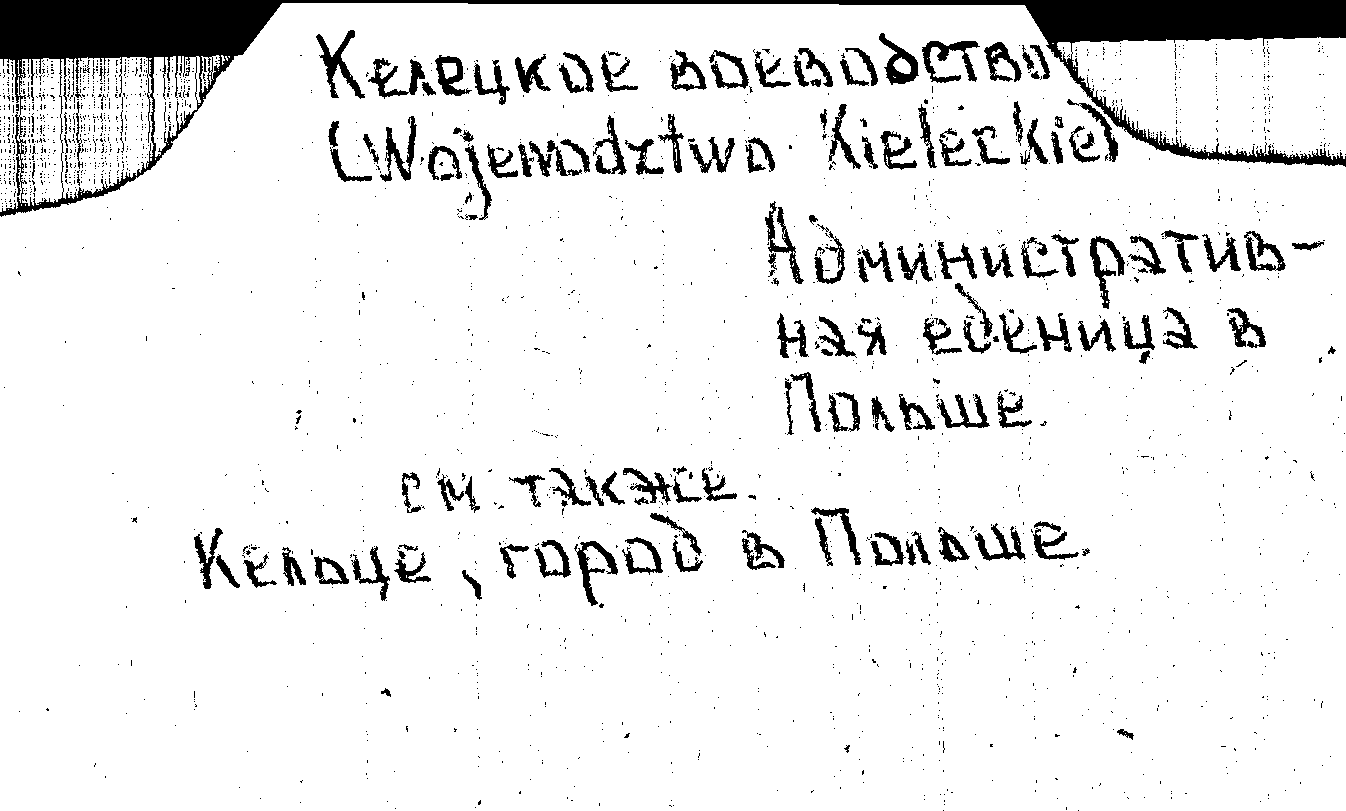 Келецкое воеводство
(Województwo Kieleckie)
Административ-
ная еденица в
Польше.
см. также.
Кельце, город в Польше.